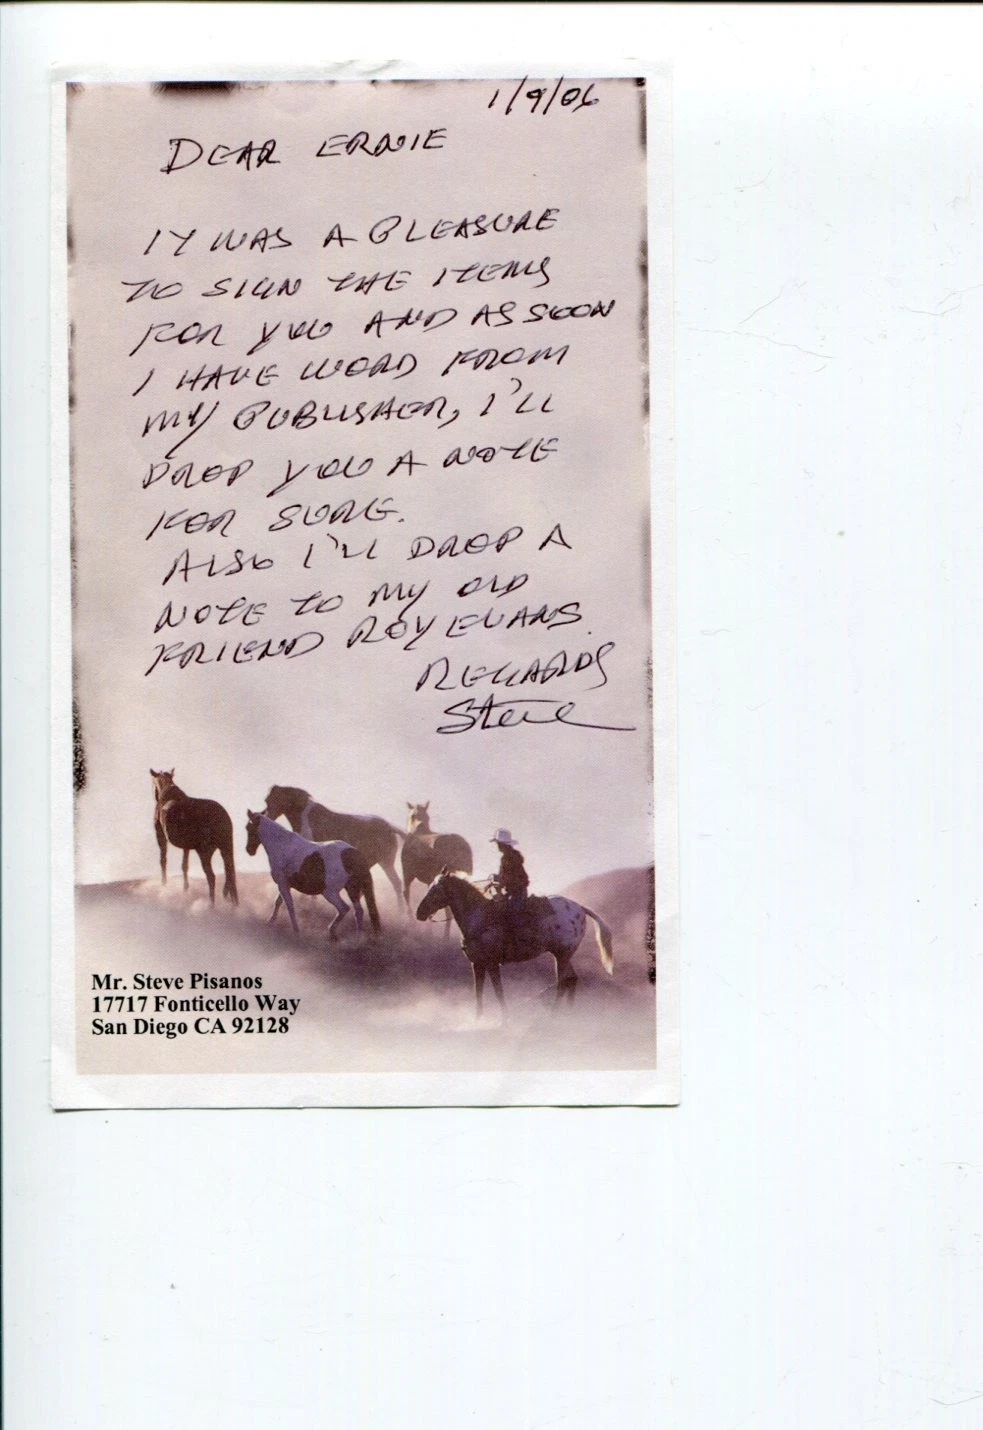 1/9/06
DEAR ERNIE
IT WAS A PLEASURE
TO SIGN THE ITEMS
FOR YOU AND AS SOON
I HAVE WORD FROM
MY PUBLISHER, I'LL
DROP YOU A NOTE
FOR SURE.
ALSO I'LL DROP A
NOTE TO MY OLD
FRIEND ROY EVANS.
REGARDS
Steve
Mr. Steve Pisanos
17717 Fonticello Way
San Diego CA 92128